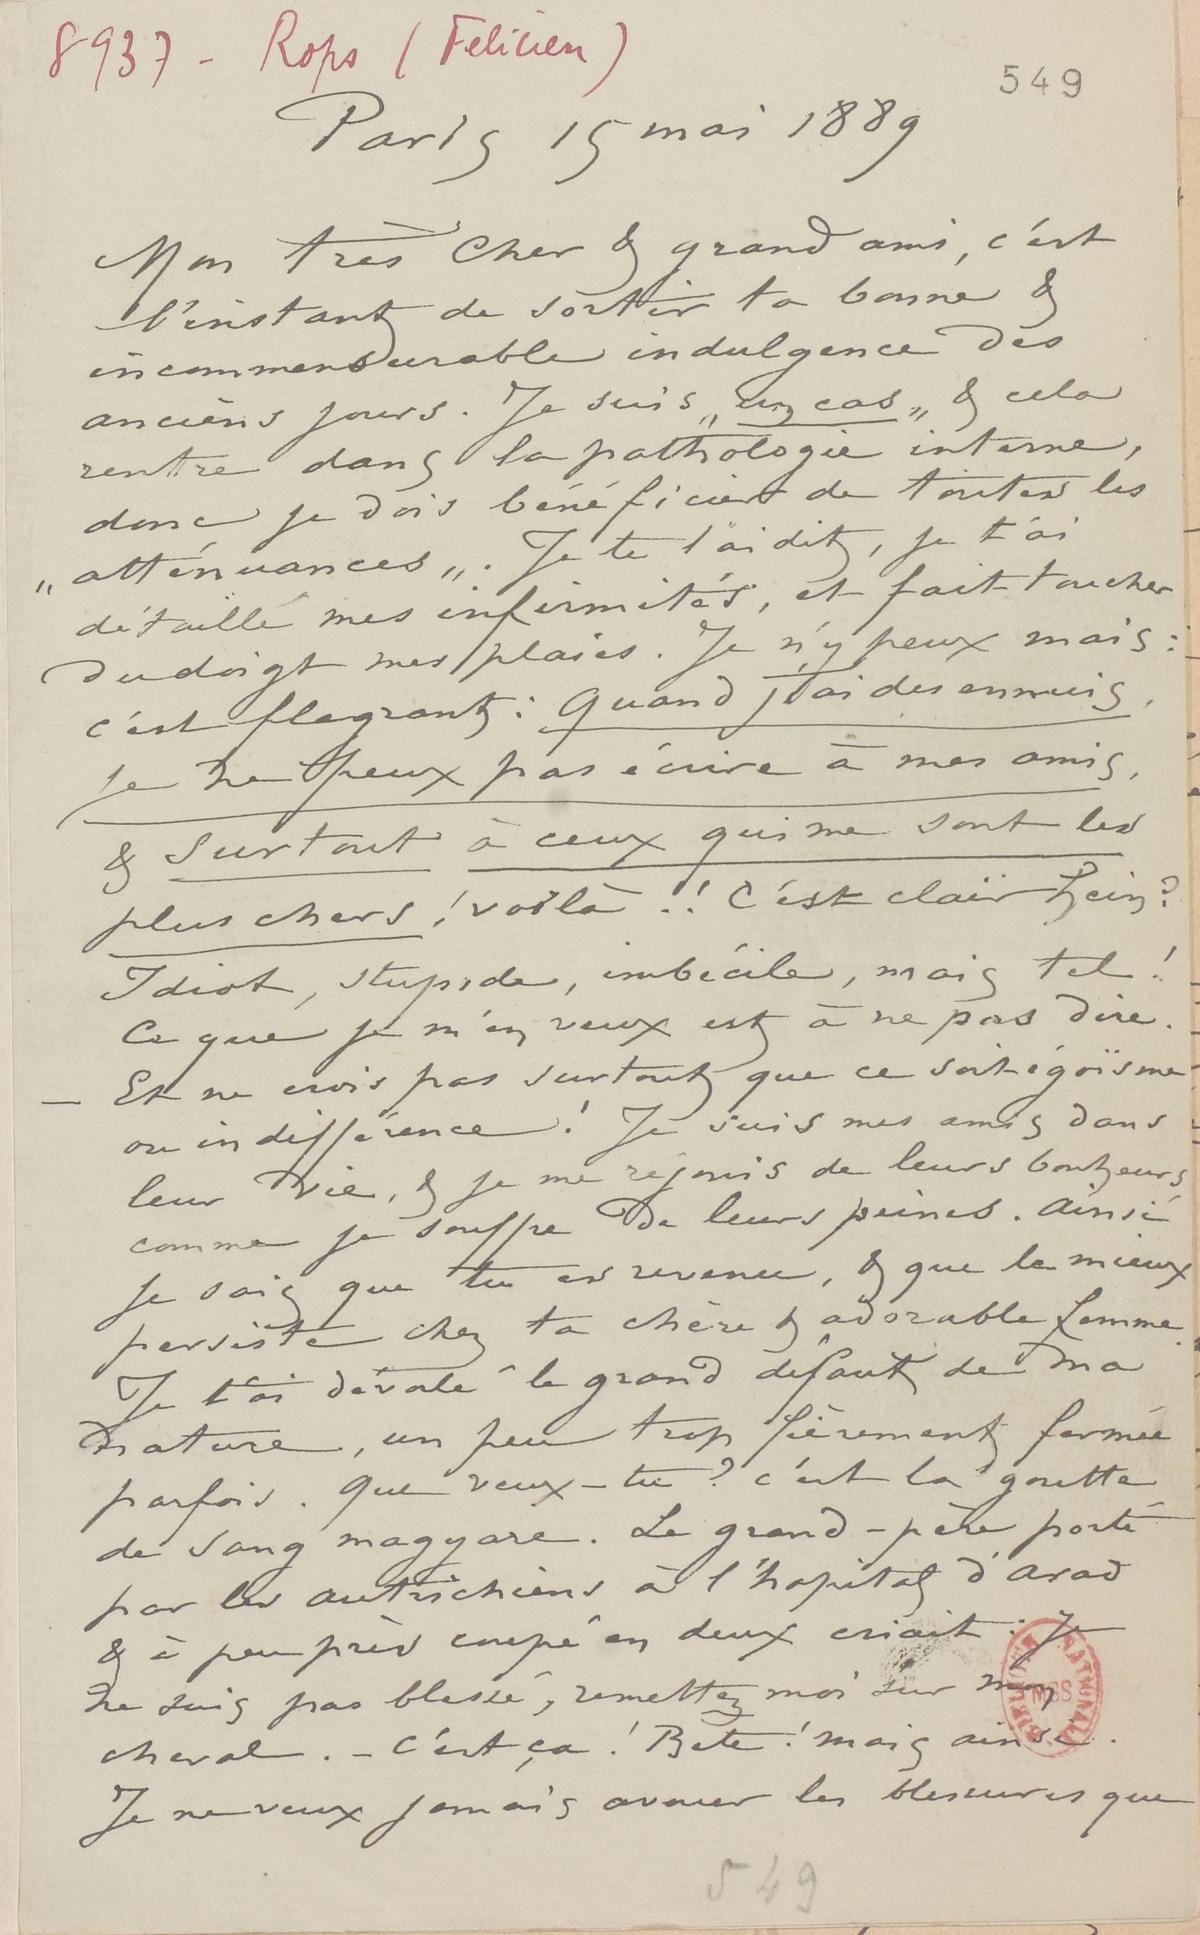 8937 - Rops (Félicien)
549
Paris 15 mai 1889
Mon très cher & grand ami, c'est
l'instant de sortir ta bonne &
incommensurable indulgence des
anciens jours. Je suis „un cas„ & cela
rentre dans la pathologie interne,
donc je dois bénéficier de toutes les
„atténuances„. Je te l'ai dit, je t'ai
détaillé mes infirmités, et fait toucher
du doigt mes plaies. Je n'y peux mais :
c'est flagrant : Quand j'ai des ennuis,
je ne peux pas écrire à mes amis,
& surtout à ceux qui me sont les
plus chers ! voilà !! C'est clair hein?
Idiot, stupide, imbécile, mais tel !
Ce que je m'en veux est à ne pas dire.
— Et ne crois pas surtout que ce soit égoïsme
ou indifférence ! Je suis mes amis dans
leur vie, & je me réjouis de leurs bonheurs
comme je souffre de leurs peines. Ainsi
je sais que tu es revenu, & que le mieux
persiste chez ta chère & adorable femme.
Je t'ai dévoilé le grand défaut de ma
nature, un peu trop fièrement fermée
parfois. Que veux-tu ? c'est la goutte
de sang magyare. Le grand-père porté
par les autrichiens à l'hopital d'Arad
& à peu près coupé en deux criait : Je
ne suis pas blessé, remettez moi sur mon
cheval. – C'est ça ! Bête ! mais ainsi.
Je ne veux jamais avouer les blessures que
BIBLIOTHÈQUE NATIONALE MSS
549